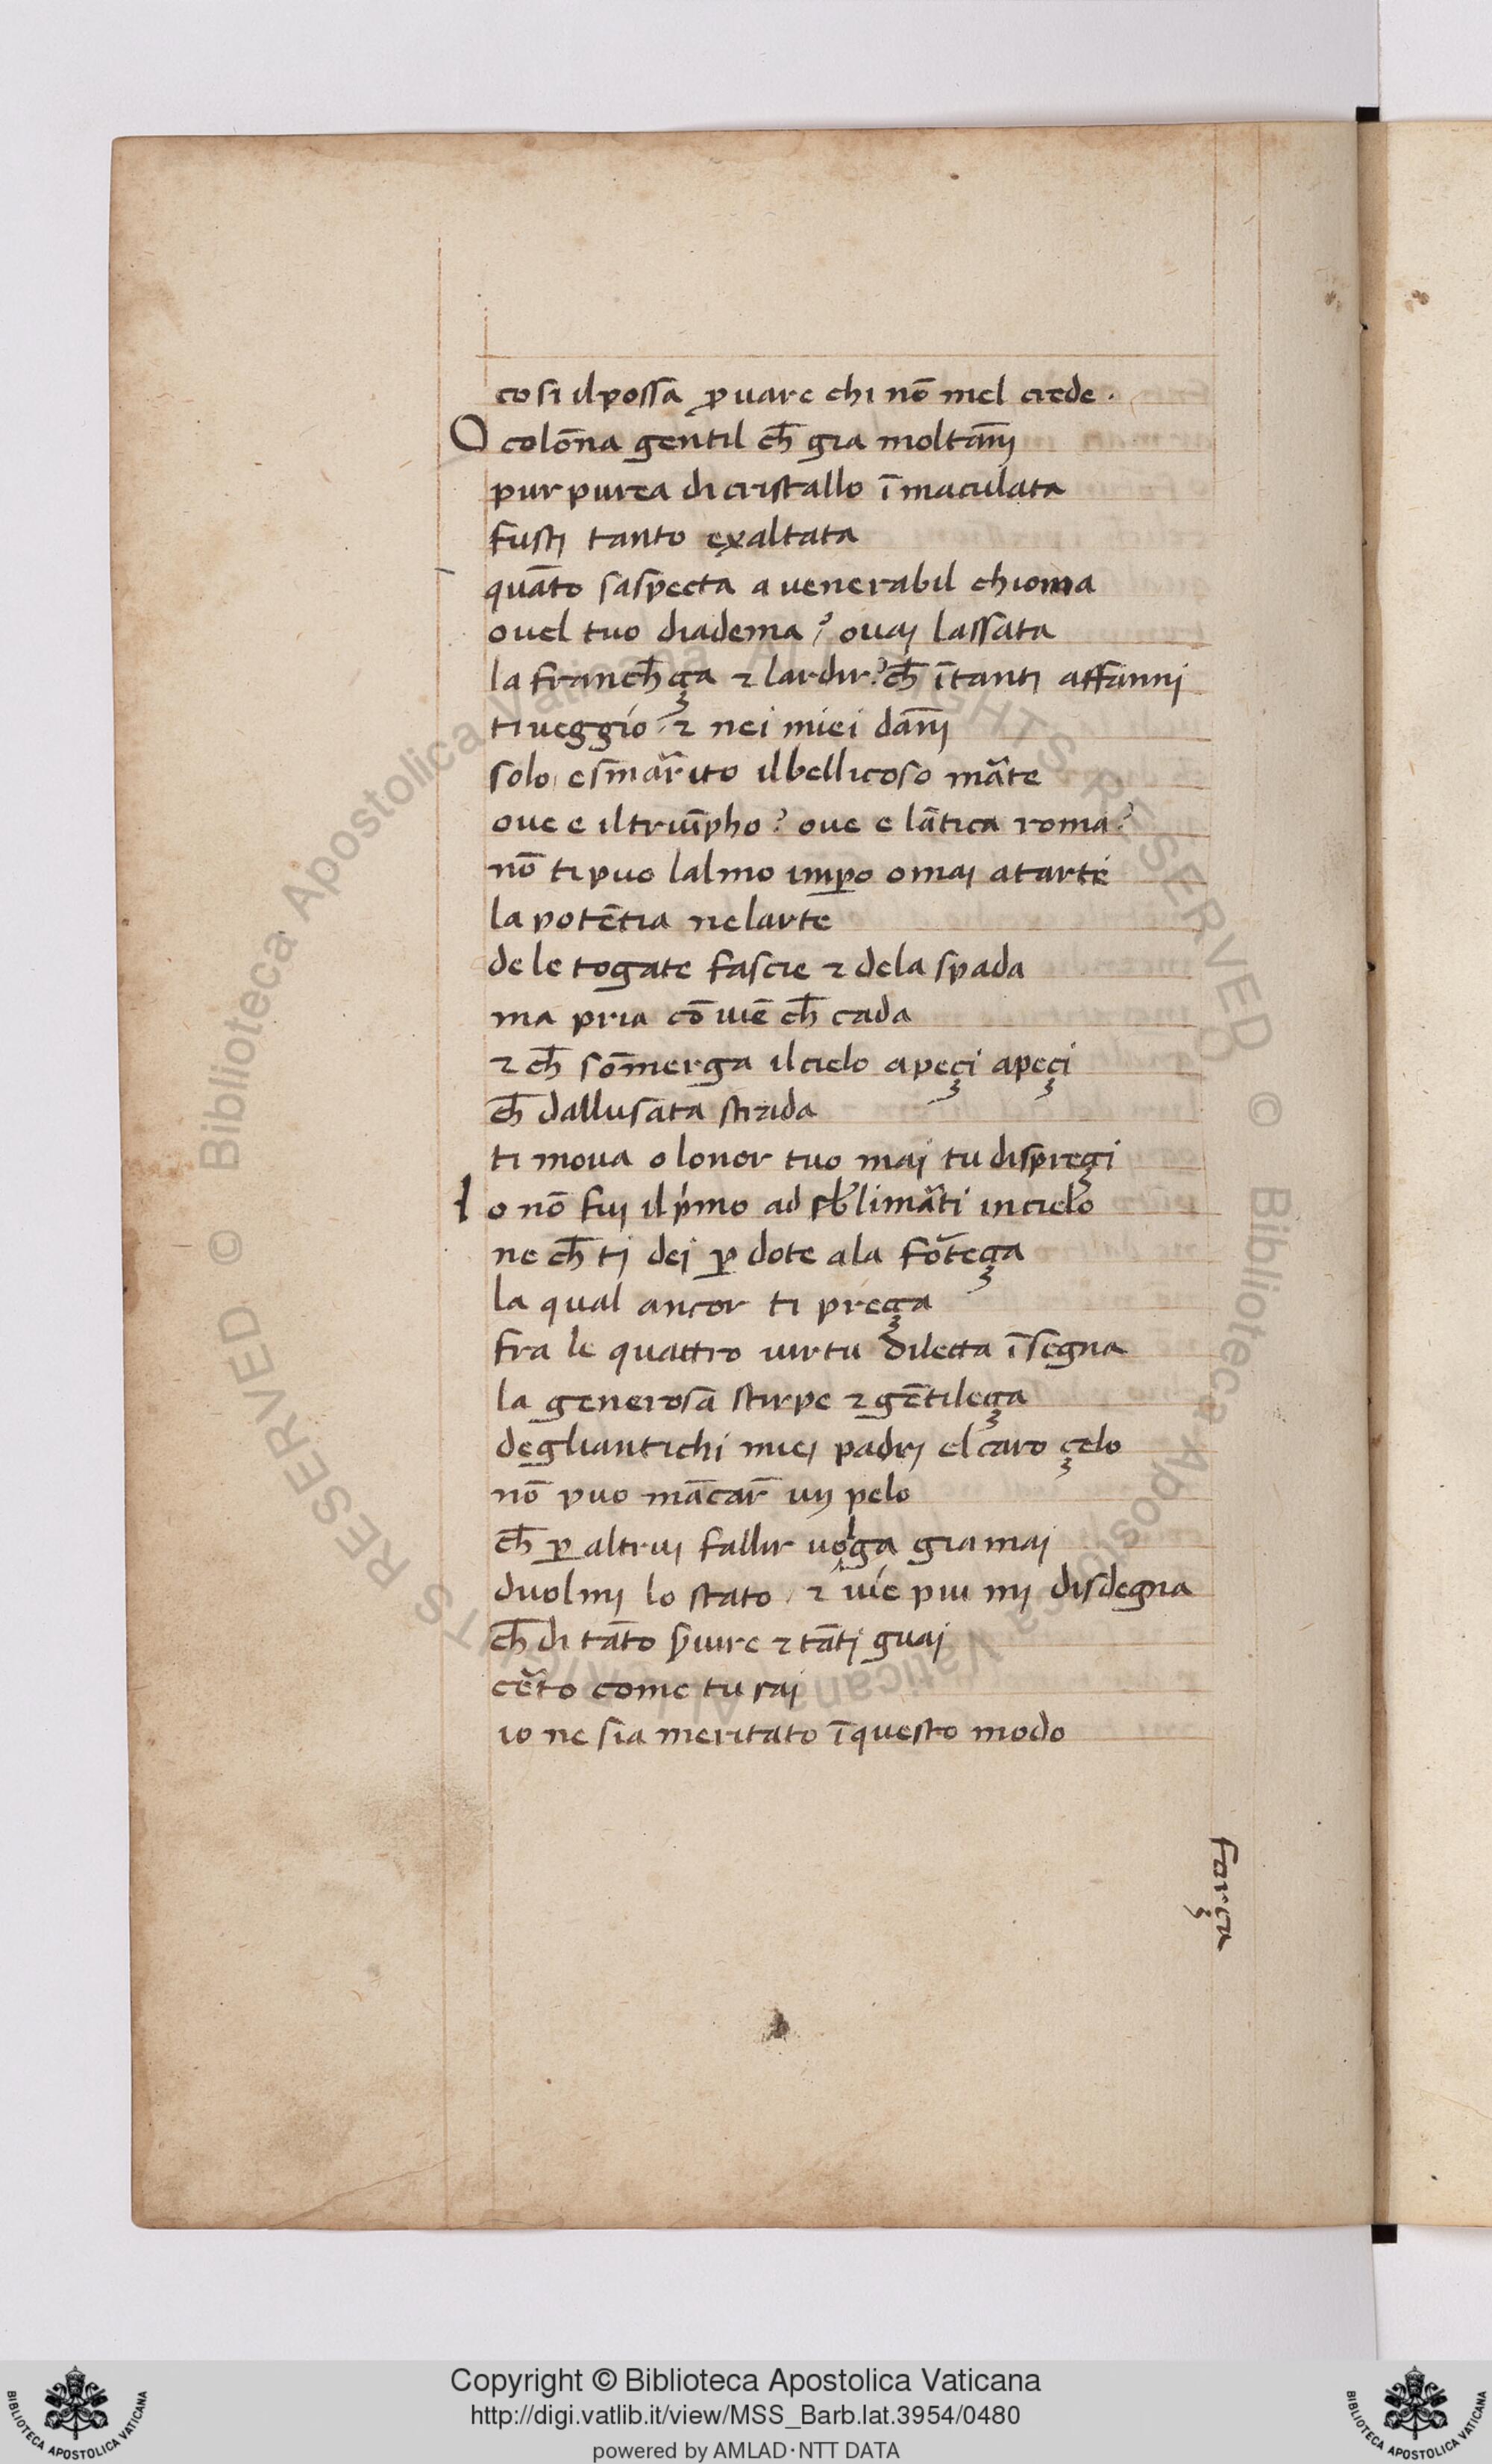 cosi il possa ꝓuare chi nō mel crede .
O colōna gentil ch̄ gia molt ām̄j
purpurea di cristallo īmaculata
fustj tanto exaltata
quāto saspecta a uenerabil chioma
ouel tuo diadema ? ouaj lassata
la franch̄eça ⁊ lardir? ch̄ ītanti affannj
ti ueggio ? ⁊ nei miei dam̄j
solo, esmar̄ito il bellicoso mār̄te
oue e il triūpho ? oue e lātica roma ?
nō ti puo lalmo imꝑo omaj atarte
la potētia nelarte
de le togate fascie ⁊ dela spada
ma pria cō uiē ch̄ cada
⁊ ch̄ sōmerga il cielo a peçi apeçi
ch̄ dallusata strada
ti moua o lonor tuo maj tu dispregi
Io nō fuj il p̍mo ad sb̄limārti incielo
ne ch̄ tj dej ꝑ dote ala fōrteça
la qual ancor ti preça
fra le quattro uirtu diletta īsegna
la generosa stirpe ⁊ gētileça
degliantichi miej padrj el caro çelo
nō puo mācar̄ uŋ pelo
ch̄ ꝑ altruj fallir uolga gia maj
duolmj lo stato / ⁊ uíe piu mj disdegna
ch̄ di tāto s̄uire ⁊ tātj guaj
cēr̄to come tu saj
io ne sia meritato īquesto modo
força
Copyright © Biblioteca Apostolica Vaticana
http://digi.vatlib.it/view/MSS_Barb.lat.3954/0480
powered by AMLAD·NTT DATA
BIBLIOTECA APOSTOLICA VATICANA
BIBLIOTECA APOSTOLICA VATICANA
© Biblioteca Apostolica Vaticana ALL RIGHTS RESERVED © Biblioteca Apostolica Vaticana ALL RIGHTS RESERVED